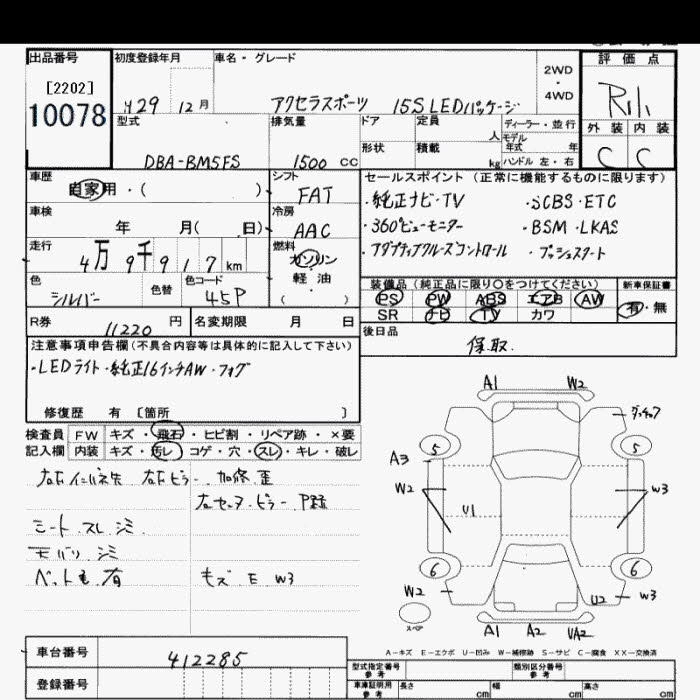 出品番号 初度登録年月 車名・グレード 2WD・4WD 評価点
[2202]
10078 H29 12月 アクセラスポーツ 15S LEDパッケージ
型式 排気量 ドア 定員 人 ディーラー・並行 外装 内装
DBA-BM5FS 1500 CC 形状 積載 kg モデル年式 年 ハンドル 左・右 C C
車歴 自家用・( ) シフト FAT
セールスポイント(正常に機能するものに限ります)
車検 年 月( 日) 冷房 AAC
・純正ナビ・TV ・SCBS・ETC
・360°ビューモニター ・BSM・LKAS
走行 4万9千917km 燃料 ガソリン 軽油 ( )
・アダプティブクルーズコントロール ・プッシュスタート
色 シルバー 色替 色コード 45P
装備品(純正品に限り○をつけてください) 新車保証書
PS PW ABS エアB AW 有・無
SR ナビ TV カワ
R券 11220円 名変期限 月 日
後日品 保取.
注意事項申告欄(不具合内容等は具体的に記入して下さい)
・LEDライト・純正16インチAW・フォグ
修復歴 有 [箇所 ]
検査員 FW キズ・飛石・ヒビ割・リペア跡・×要
記入欄 内装 キズ・汚レ・コゲ・穴・スレ・キレ・破レ
シート.スレ.シミ
ペット毛.有 キズ E W3
A1 W2
5 5
A3
W2 W3
U1
6 6
W2 U2 W3
スペア
A1 A2 UA2
A-キズ E-エクボ U-凹み W-補修跡 S-サビ C-腐食 XX-交換済
車台番号 412285
登録番号
型式指定番号 参考 類別区分番号 参考
車庫証明用 参考 長さ cm 幅 cm 高さ cm